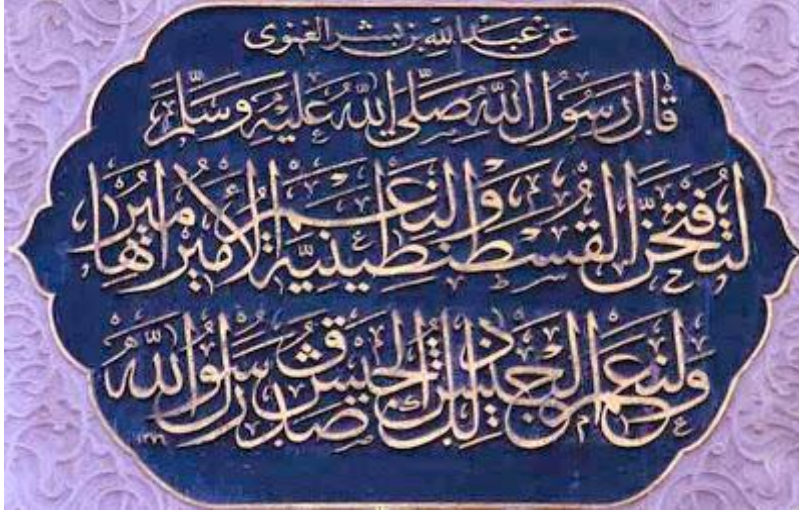 عن عبد الله بن بشر الغنوى
قَالَ رَسُولُ اللهِ صَلَّى اللهُ عَلَيْهِ وَسَلَّمَ
لَتُفْتَحَنَّ الْقُسْطَنْطِينِيَّةُ وَلَنِعْمَ الْأَمِيرُ أَمِيرُهَا
وَلَنِعْمَ الْجَيْشُ ذَلِكَ الْجَيْشُ صَدَقَ رَسُولُ اللهِ